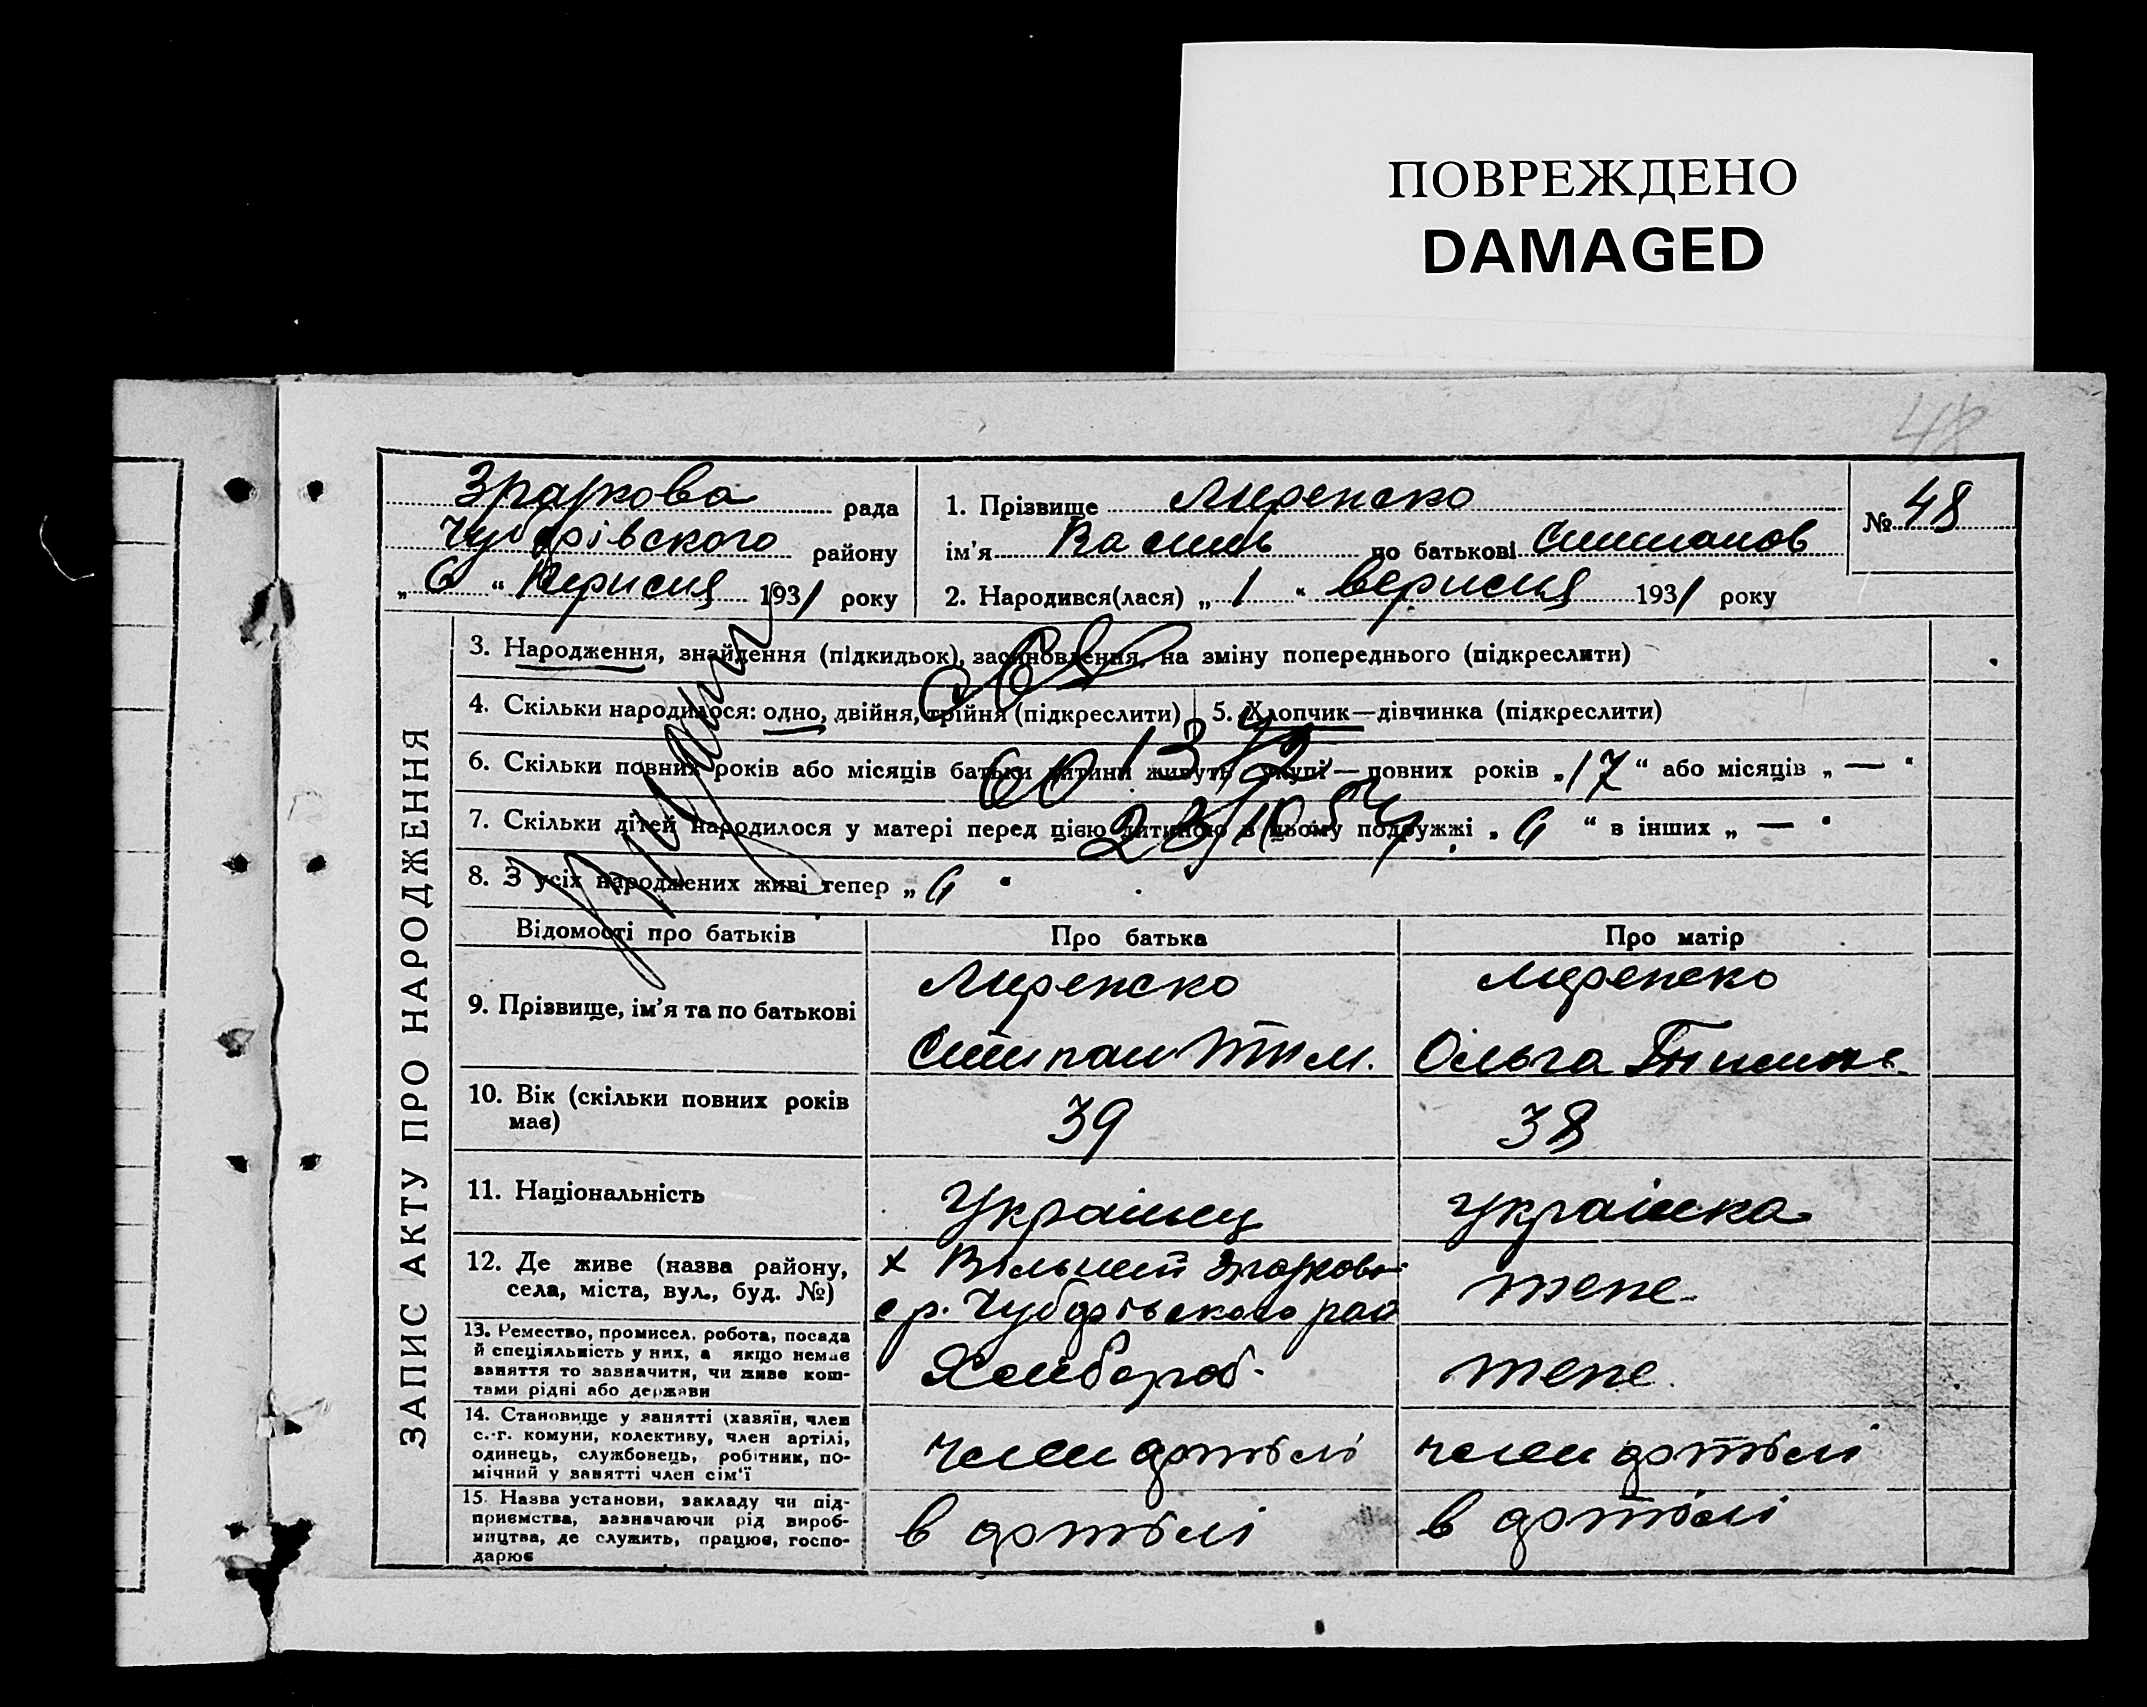 ПОВРЕЖДЕНО
DAMAGED
48
рада
Чубарівського району
„ 6 “ Вересня 1931 року
1. Прізвище Лиренско
ім'я Василь по батькові
№ 48
2. Народився(лася) „ 1 “ вересня 1931 року
3. Народження, знайдення (підкидьок), засиновлення, на зміну попереднього (підкреслити)
4. Скільки народилося: одно, двійня, трійня (підкреслити)
5. Хлопчик—дівчинка (підкреслити)
6. Скільки повних років або місяців батьки дитини живуть укупі — повних років „ 17 “ або місяців „ — “
7. Скільки дітей народилося у матері перед цією дитиною в цьому подружжі „ 6 “ в інших „ — “
8. З усіх народжених живі тепер „ 6 “
ЗАПИС АКТУ ПРО НАРОДЖЕННЯ
Відомості про батьків
Про батька
Про матір
9. Прізвище, ім'я та по батькові
Лиренско
Лиренско
Тим.
Ольга
10. Вік (скільки повних років
має)
39
38
11. Національність
Українец
українка
12. Де живе (назва району,
села, міста, вул., буд. №)
х
с р. Чубарівського рай
теже
13. Ремество, промисел, робота, посада
й спеціяльність у них, а якщо немає
заняття то зазначити, чи живе кош-
тами рідні або держави
Хлібороб.
теже.
14. Становище у занятті (хазяїн, член
с.-г. комуни, колективу, член артілі,
одинець, службовець, робітник, по-
мічний у занятті член сім'ї
член артілі
член артілі
15. Назва установи, закладу чи під-
приємства, зазначаючи рід вироб-
ництва, де служить, працює, госпо-
дарює
в артілі
в артілі